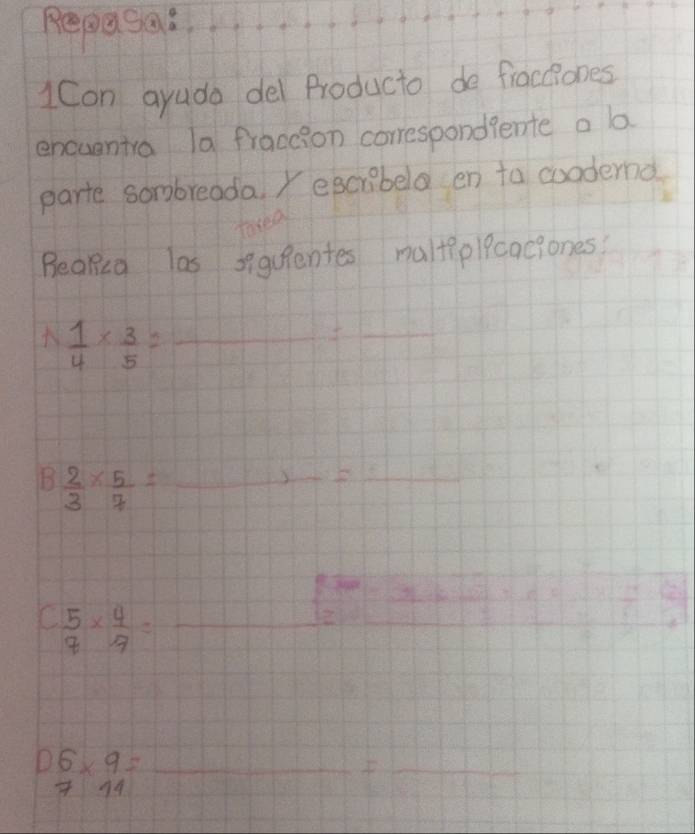 Repasa:
1 Con ayuda del Producto de fracciones
encuentra la fraccion correspondiente a la
parte sombreada. Y escribela en tu cuaderno.
Tarea
Realiza las siguientes multiplicaciones:
A 1/4 x 3/5 = ______ = ____
B 2/3 x 5/7 = ______ = ____
C 5/7 x 4/9 = ______
D 6/7 x 9/11 = ______ = ____